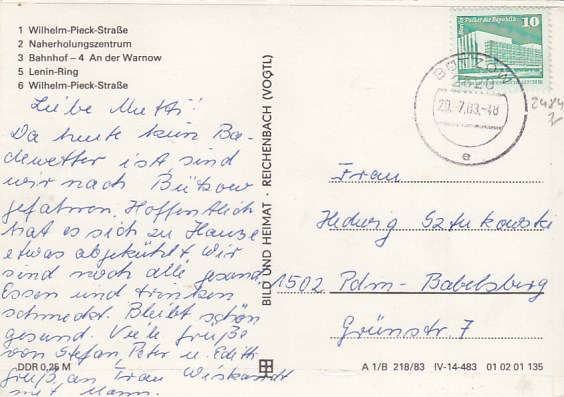 1 Wilhelm-Pieck-Straße
2 Naherholungszentrum
3 Bahnhof – 4 An der Warnow
5 Lenin-Ring
6 Wilhelm-Pieck-Straße
Liebe Mutti!
Da heute kein Ba-
dewetter ist sind
wir nach Bützow
gefahren. Hoffentlich
hat es sich zu Hause
etwas abgekühlt. Wir
sind noch alle gesund
Essen und trinken
schmeckt. Bleibt schön
gesund. Viele Grüße
von Stefan, Peter u. Edith
Grüß an Frau
mit Mann.
DDR 0,25 M
BILD UND HEIMAT · REICHENBACH (VOGTL)
Palast der Republik
10
BÜTZOW
2620
29.-7.83.-18
e
Frau
Hedwig Sztukowski
1502 Pdm-Babelsberg
Grünstr. 7
A 1/B 218/83 IV-14-483 01 02 01 135